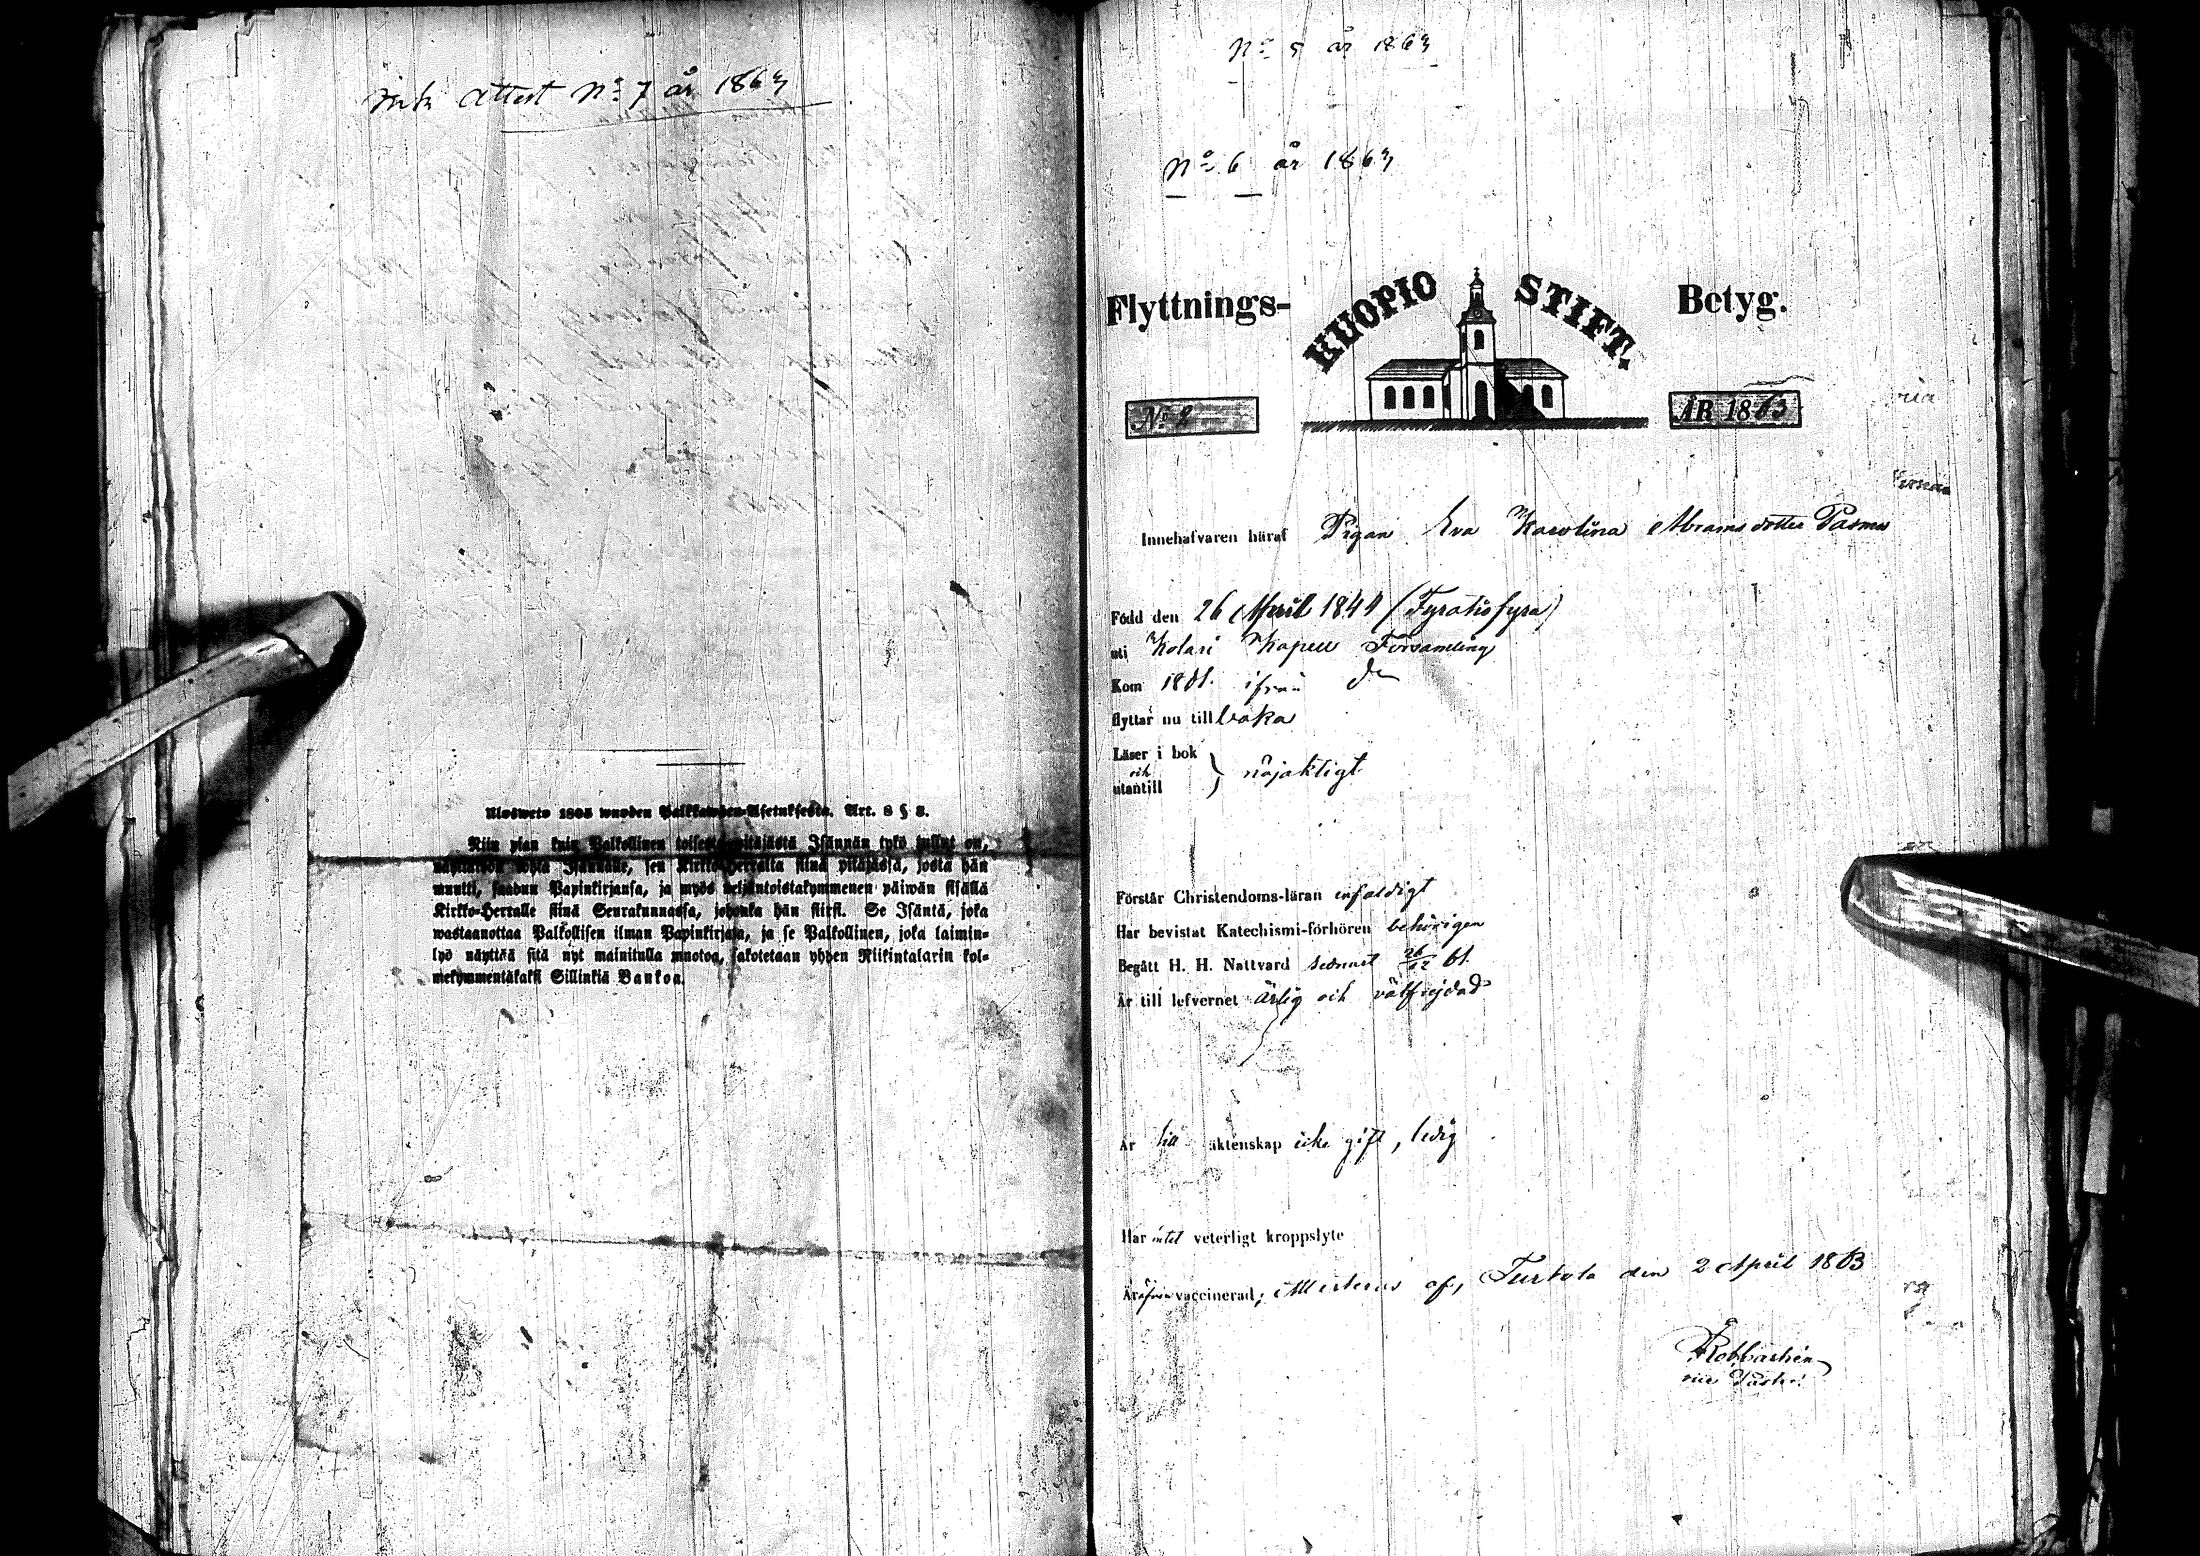 attest Nº 7 år 1863
Ulosweto 1805 wuoden Palkkawäen-Asetuksesta. Art. 8 § 8.
Niin pian kuin Palkollinen toisesta pitäjästä Isännän tykö tullut on,
näyttäköön Isännälle, sen Kirkko-Herralta siinä pitäjässä, josta hän
muutti, saadun Papinkirjansa, ja myös neljäntoistakymmenen päiwän sisällä
Kirkko-Herralle siinä Seurakunnassa, johonka hän siirsi. Se Isäntä, joka
wastaanottaa Palkollisen ilman Papinkirjata, ja se Palkollinen, joka laimin-
lyö näyttää sitä nyt mainitulla muotoa, sakotetaan yhden Riikintalarin kol-
mekymmentäkaksi Sillinkiä Bankoa.
Nº 5 år 1863
Nº 6 år 1863
Flyttnings- KUOPIO STIFT. Betyg.
No 2 ÅR 1863
Innehafvaren häraf Pigan Eva Karolina Abramsdotter
Född den 26 April 1844 (Fyratiofyra)
uti Kolari Kapell Församling
Kom 1861. ifrån
flyttar nu tillbaka
Läser i bok
och } nöjaktigt
utantill
Förstår Christendoms-läran enfaldigt
Har bevistat Katechismi-förhören behörigen
Begått H. H. Nattvard senast 26/12 61.
Är till lefvernet ärlig och välfrejdad
Är till äktenskap icke gift, ledig
Har intet veterligt kroppslyte
Är äfven vaccinerad; Attesteras af, Turtola den 2 April 1863